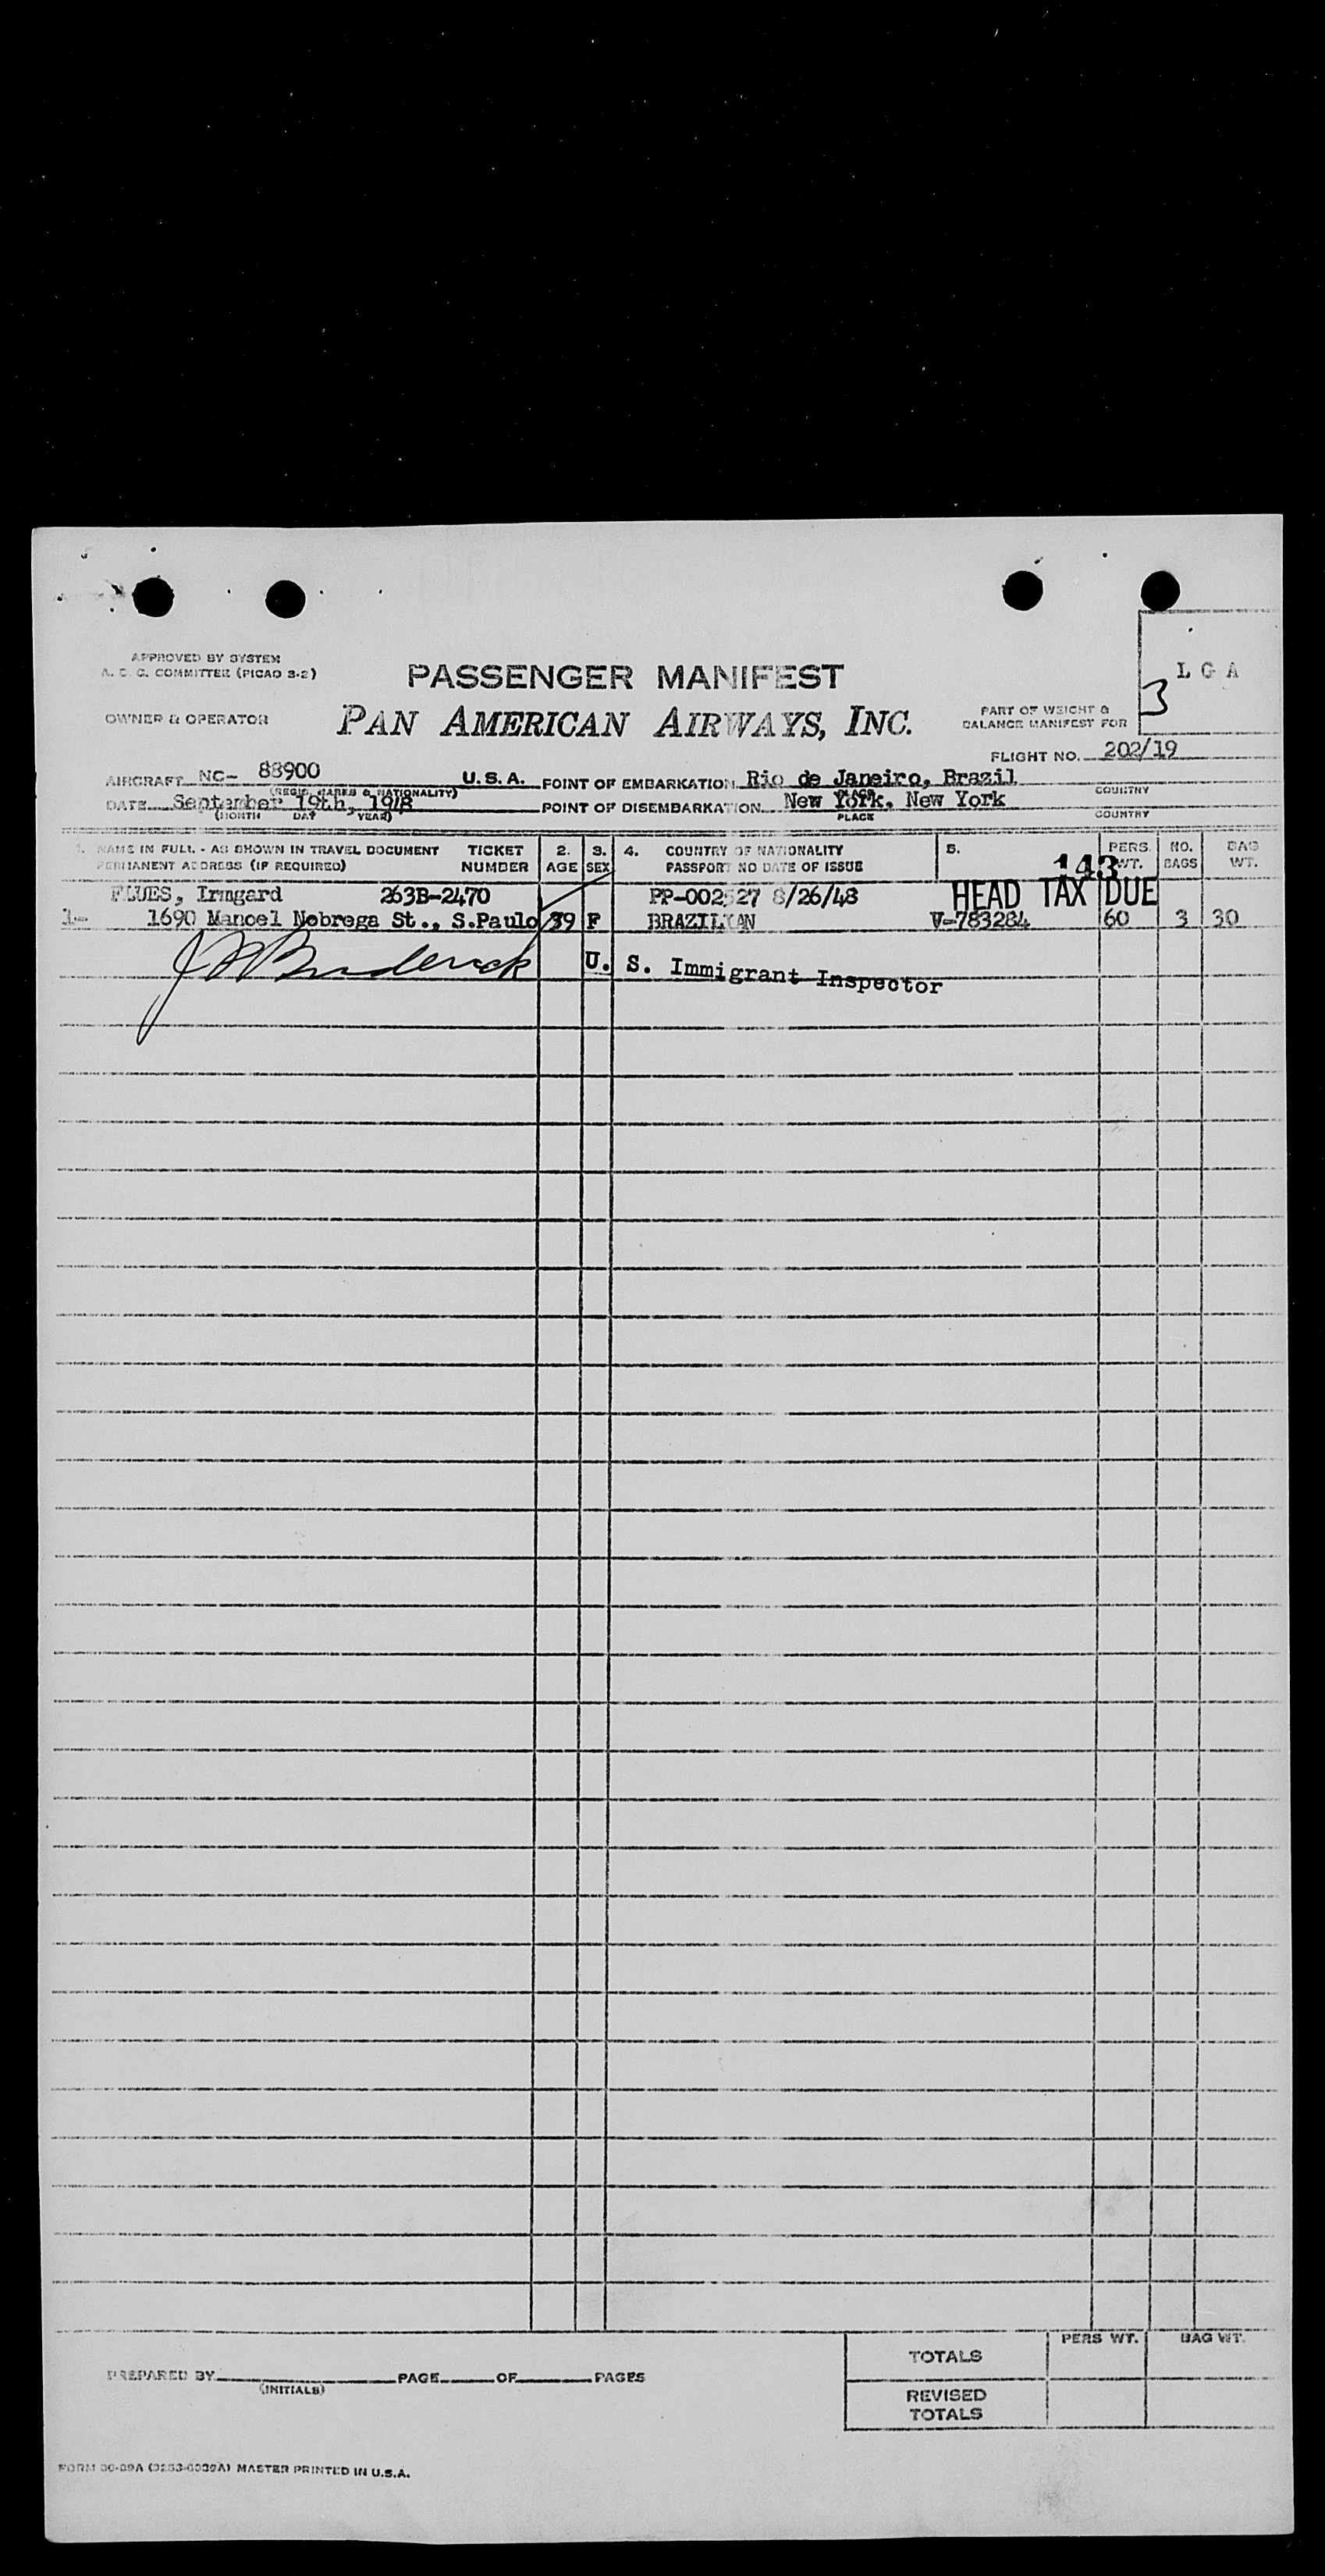 APPROVED BY SYSTEM
A. C. C. COMMITTEE (PICAO 3-2)
PASSENGER MANIFEST
L G A
3
OWNER & OPERATOR
PAN AMERICAN AIRWAYS, INC.
PART OF WEIGHT &
BALANCE MANIFEST FOR
FLIGHT NO. 202/19
AIRCRAFT NC- 88900 U.S.A. POINT OF EMBARKATION Rio de Janeiro, Brazil
(REGIS. MARKS & NATIONALITY) PLACE COUNTRY
DATE September 19th, 1948 POINT OF DISEMBARKATION New York, New York
(MONTH DAY YEAR) PLACE COUNTRY
1. NAME IN FULL - AS SHOWN IN TRAVEL DOCUMENT TICKET 2. 3. 4. COUNTRY OF NATIONALITY 5. PERS. NO. BAG
PERMANENT ADDRESS (IF REQUIRED) NUMBER AGE SEX PASSPORT NO DATE OF ISSUE 143 WT. BAGS WT.
FLUES, Irmgard 263B-2470 PP-002527 8/26/48 HEAD TAX DUE
1- 1690 Manoel Nobrega St., S.Paulo 39 F BRAZILIAN V-783284 60 3 30
J Broderick U. S. Immigrant Inspector
TOTALS PERS WT. BAG WT.
PREPARED BY PAGE OF PAGES
(INITIALS)
REVISED
TOTALS
MASTER PRINTED IN U.S.A.